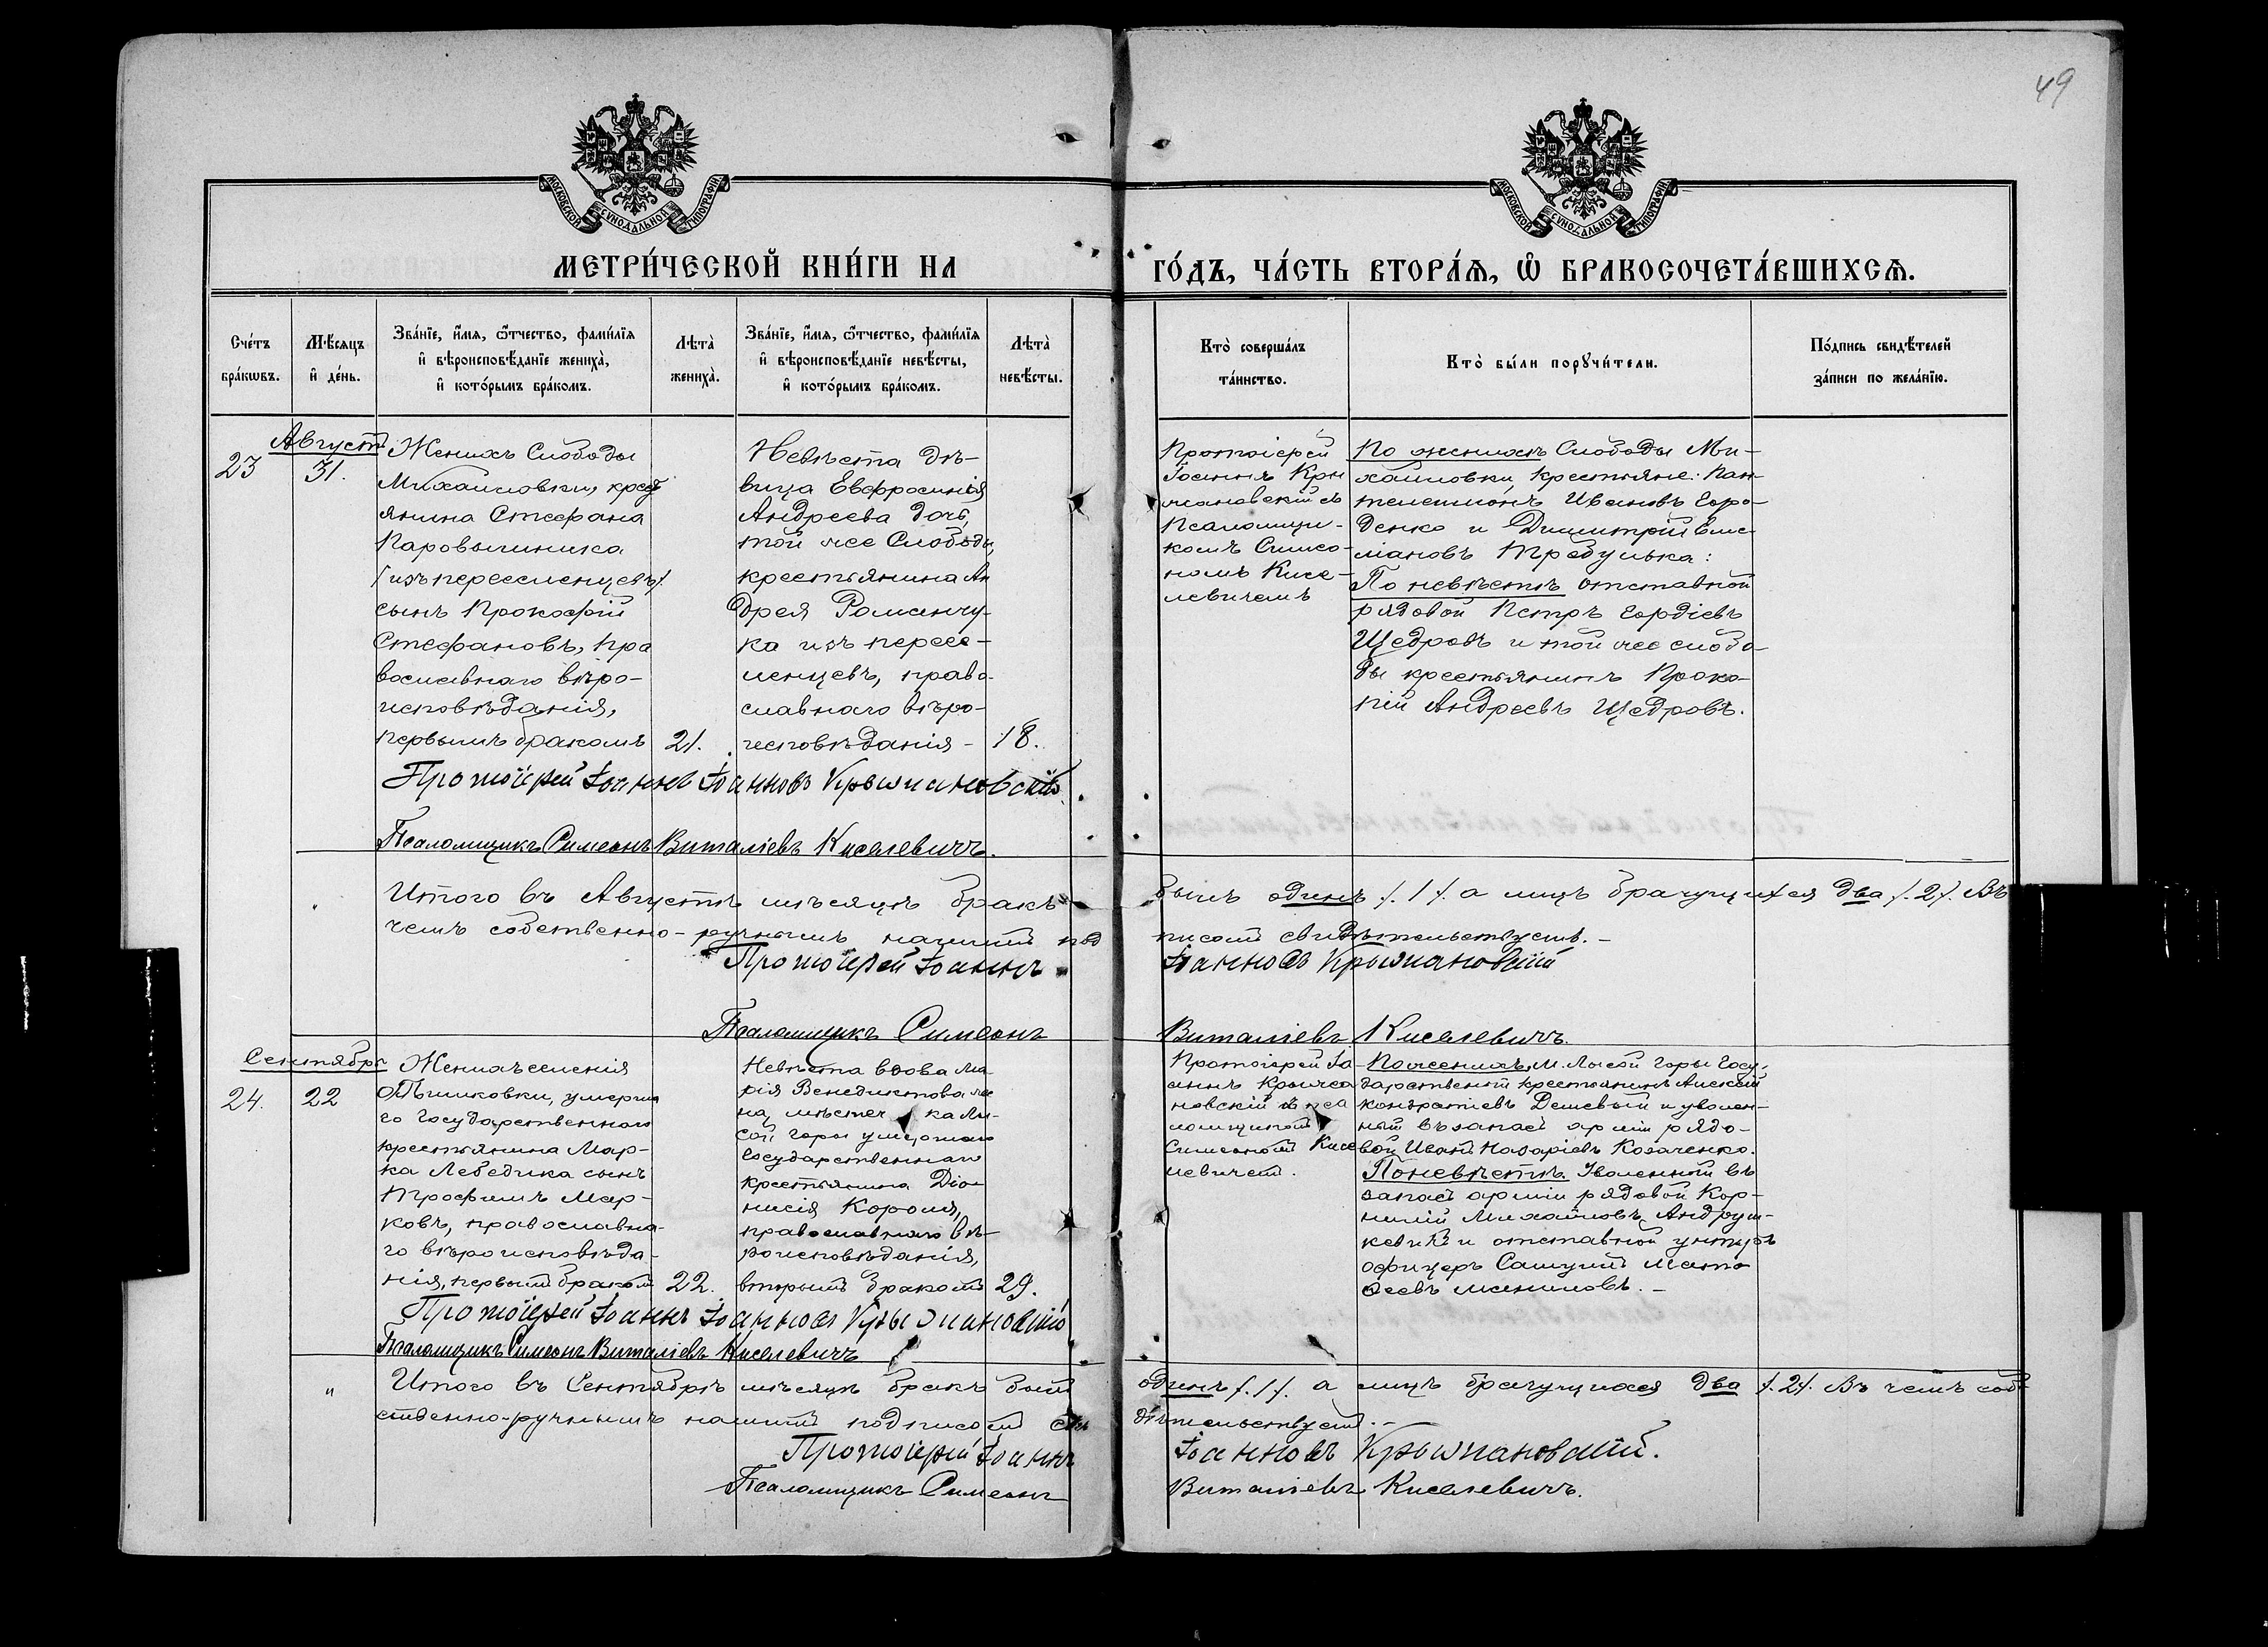 49
МОСКОВСКОЙ СѴНОДАЛЬНОЙ ТИПОГРАФІИ
МОСКОВСКОЙ СѴНОДАЛЬНОЙ ТИПОГРАФІИ
МЕТРИ́ЧЕСКОЙ КНИ́ГИ НА
ГО́ДЪ, ЧА́СТЬ ВТОРА́Я, Ѡ҆ БРАКОСОЧЕТА́ВШИХСЯ.
Сче́тъ
бра́кѡвъ.
Мѣ́сяцъ
и҆ де́нь.
Зва́нїе, и҆́мя, ѻ҆́тчество, фами́лїя
и҆ вѣроисповѣ́данїе жениха̀,
и҆ кото́рымъ бра́комъ.
Лѣта̀
жениха̀.
Зва́нїе, и҆́мя, ѻ҆́тчество, фами́лїя
и҆ вѣроисповѣ́данїе невѣ́сты,
и҆ кото́рымъ бра́комъ.
Лѣта̀
невѣ́сты.
Кто̀ соверша́лъ
та́инство.
Кто̀ бы́ли порꙋчи́тели.
По́дпись свидѣ́телей
за́писи по жела́нїю.
23
Август
31.
Женихъ Слободы
Михайловки, крест
янина Стефана
Паровышника
/изъ переселенцевъ/
сынъ Прокофій
Стефановъ, пра
вославнаго вѣро-
исповѣданія,
первымъ бракомъ
21.
Невѣста дѣ-
вица Евфросинія
Андреева дочь,
той же Слободы,
крестьянина Ан
дрея Романчу-
ка изъ пересе-
ленцевъ, право-
славнаго вѣро-
исповѣданія -
18.
Протоіерей
Іоаннъ Кры
жановскій съ
Псаломщи-
комъ Симео-
номъ Кисе-
левичемъ
По женихѣ Слободы Ми-
хайловки, крестьяне: Пан-
телеимонъ Ивановъ Горо-
денко и Димитрій Еме-
ліановъ Трабулька:
По невѣстѣ отставной
рядовой Петръ Гордіевъ
Щедровъ и той же слобо-
ды крестьянинъ Проко-
пій Андреевъ Щедровъ.
Протоіерей Іоаннъ Іоанновъ Крыжановскій.
Псаломщикъ Симеонъ Виталіевъ Киселевичъ.
Итого въ Августѣ мѣсяцѣ бракъ
былъ одинъ /.1/. а лицъ брачущихся два /.2/. Въ
чемъ собственно-ручнымъ нашимъ под
писомъ свидѣтельствуемъ. -
Протоіерей Іоаннъ
Іоанновъ Крыжановскій
Псаломщикъ Симеонъ
Виталіевъ Киселевичъ.
Сентябрь
24.
22
Женихъ селенія
умерша
го Государственнаго
крестьянина Мар-
ка Лебедика сынъ
Трофимъ Мар-
ковъ, православна-
го вѣроисповѣда-
нія, первымъ бракомъ
22.
Невѣста вдова Ма-
рія Венедиктова же
на, мѣстеч ка Лы-
сой Горы умершаго
Государственнаго
крестьянина Діо-
нисія Короля,
православнаго вѣ-
роисповѣданія,
вторымъ бракомъ
29.
Протоіерей Іо-
аннъ Крыжа
новскій съ пса
ломщикомъ
Симеономъ Кисе
левичемъ.
По женихѣ, М. Лысой Горы Госу-
дарственный крестьянинъ Алексѣй
Кондратіевъ Дешевый и уволен-
ный въ запасъ арміи рядо-
вой Иванъ Назаріевъ Козаченко.
По невѣстѣ. Уволенный въ
запасъ арміи рядовой Кор-
нилій Михайловъ Андруш-
кевичъ и отставной унтеръ
офицеръ Самуилъ Мато
ѳеевъ
Протоіерей Іоаннъ Іоанновъ Крыжановскій
Псаломщикъ Симеонъ Виталіевъ Киселевичъ
Итого въ Сентябрѣ мѣсяцѣ бракъ былъ
одинъ /.1/. а лицъ брачущихся два /.2/. Въ чемъ соб-
ственно-ручнымъ нашимъ подписомъ сви
дѣтельствуемъ. -
Протоіерей Іоаннъ
Іоанновъ Крыжановскій.
Псаломщикъ Симеонъ
Виталіевъ Киселевичъ.